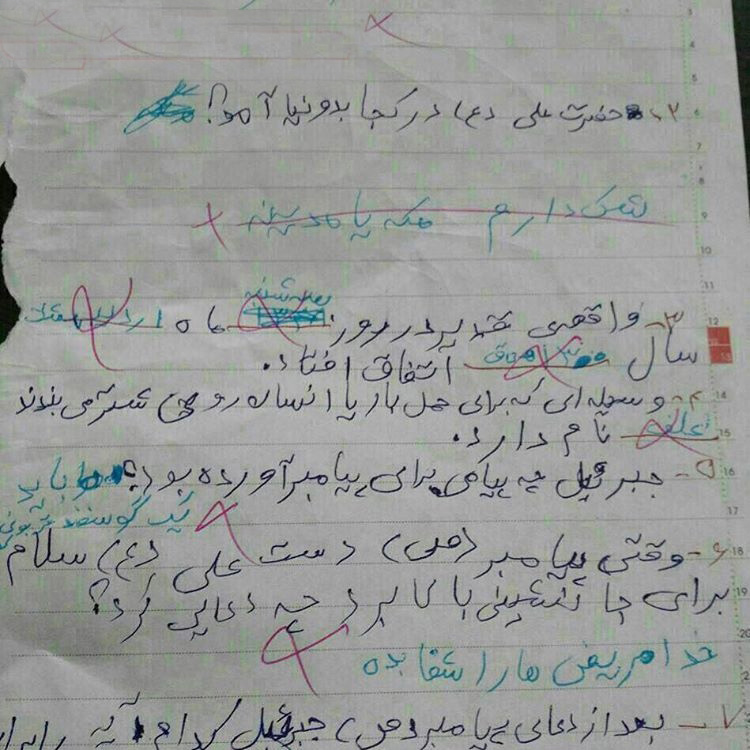 ۲- حضرت علی (ع) در کجا بدونیا آمد؟
شک دارم مکه یا مدینه
۳- واقعی غدیر در روز سه شنبه ماه
سال اتفاق افتاد.
۴- وسیله ای که برای حمل بار یا انسان روی شتر می بندند
علف نام دارد.
۵- جبرئیل چه پیامی برای پیامبر آورده بود؟ باید
یک گوسفند قربونی
۶- وقتی پیامبر (ص) دست علی (ع) سلام
برای جانشینی بالا برد چه دعایی کرد؟
خدا مریض هارا شفا بده
۷- بعد از دعای پیامبر (ص) جبرئیل کدام آیه را برای